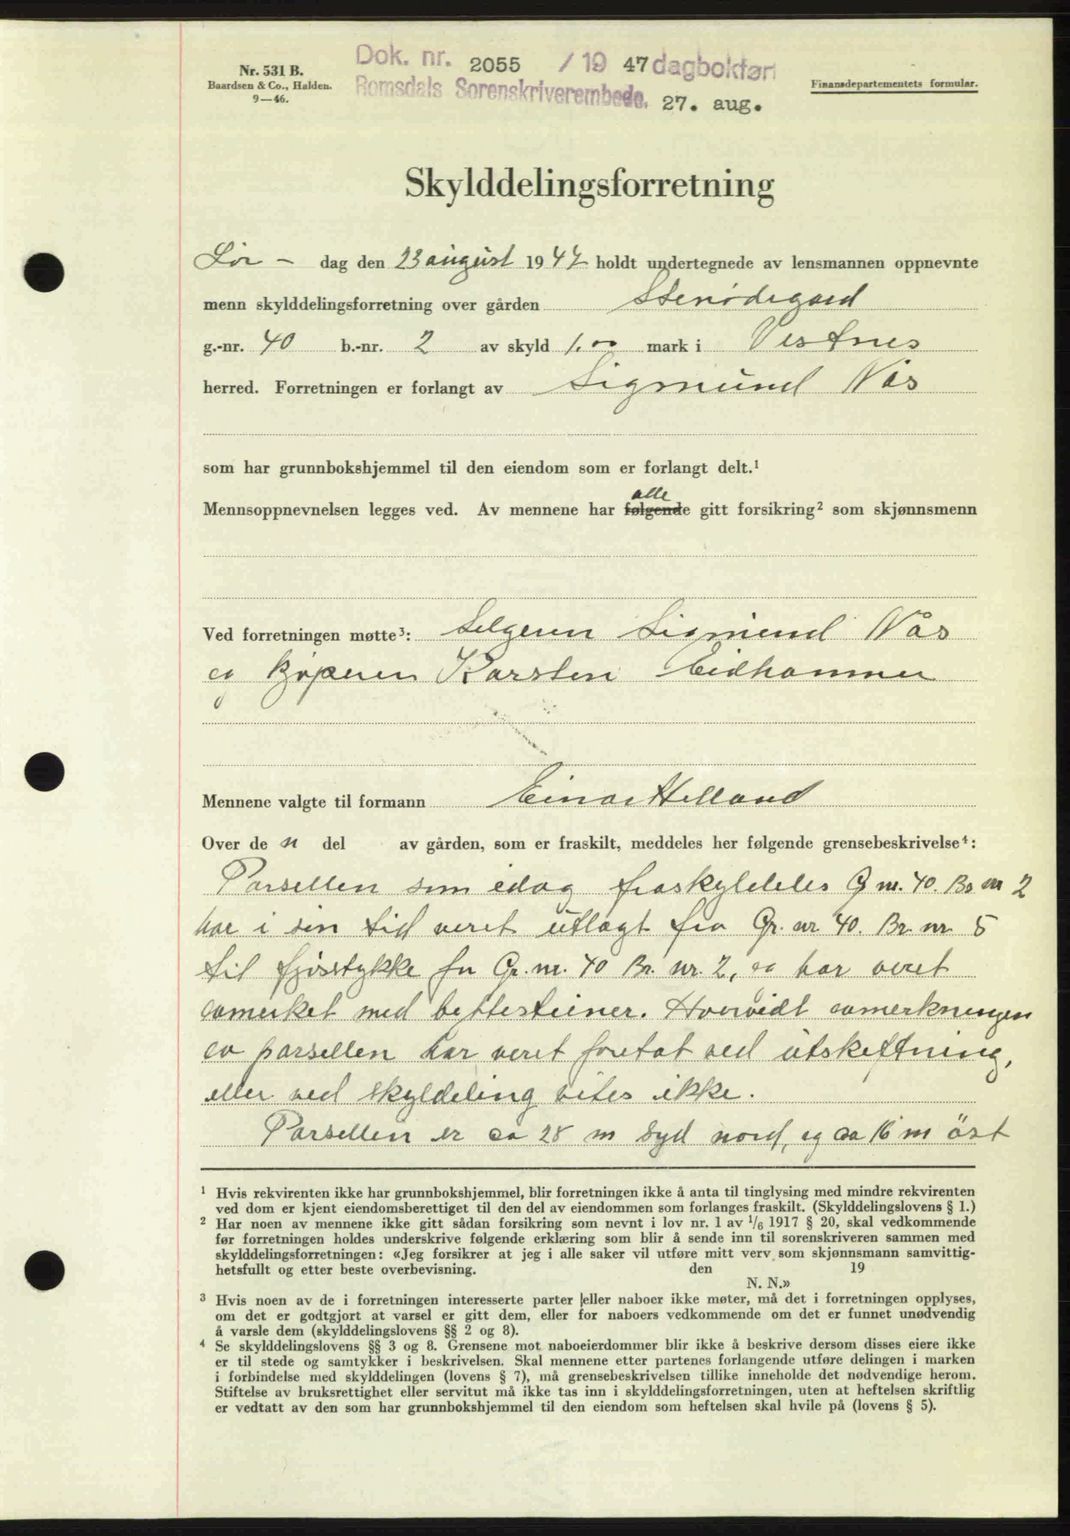 Nr. 531 B.
Baardsen & Co., Halden.
9—46.
Dok. nr. 2055 / 19 47 dagbokført
Romsdals Sorenskriverembede. 27. aug.
Finansdepartementets formular.
Skylddelingsforretning
Lør- dag den 23 august 1947 holdt undertegnede av lensmannen oppnevnte
menn skylddelingsforretning over gården Stenødegaard
g.-nr. 40 b.-nr. 2 av skyld 1.00 mark i Vestnes
herred. Forretningen er forlangt av Sigmund Nås
som har grunnbokshjemmel til den eiendom som er forlangt delt.¹
alle
Mennsoppnevnelsen legges ved. Av mennene har følgende gitt forsikring² som skjønnsmenn
Ved forretningen møtte³: Selgeren Sigmund Nås
og kjøperen Karsten Eidhammer
Mennene valgte til formann Einar Helland
Over de n del av gården, som er fraskilt, meddeles her følgende grensebeskrivelse⁴:
Parsellen som idag fraskyldeles G nr. 40. Br nr 2
har i sin tid veret utlagt fra Gr. nr 40. Br. nr. 5
til fjøsstykke for Gr. nr. 40 Br. nr. 2, og har veret
avmerket med byttesteiner. Hvorvidt avmerkningen
av parsellen har veret foretat ved utskiftning,
eller ved skyldeling vites ikke.
Parsellen er ca 28 m syd nord, og ca 16 m öst
¹ Hvis rekvirenten ikke har grunnbokshjemmel, blir forretningen ikke å anta til tinglysing med mindre rekvirenten
ved dom er kjent eiendomsberettiget til den del av eiendommen som forlanges fraskilt. (Skylddelingslovens § 1.)
² Har noen av mennene ikke gitt sådan forsikring som nevnt i lov nr. 1 av 1/6 1917 § 20, skal vedkommende
før forretningen holdes underskrive følgende erklæring som blir å sende inn til sorenskriveren sammen med
skylddelingsforretningen: «Jeg forsikrer at jeg i alle saker vil utføre mitt verv som skjønnsmann samvittig-
hetsfullt og etter beste overbevisning. den 19
N. N.»
³ Hvis noen av de i forretningen interesserte parter eller naboer ikke møter, må det i forretningen opplyses,
om det er godtgjort at varsel er gitt dem, eller for naboers vedkommende om det er funnet unødvendig
å varsle dem (skylddelingslovens §§ 2 og 8).
⁴ Se skylddelingslovens §§ 3 og 8. Grensene mot naboeierdommer blir ikke å beskrive dersom disses eiere ikke
er til stede og samtykker i beskrivelsen. Skal mennene etter partenes forlangende utføre delingen i marken
i forbindelse med skylddelingen (lovens § 7), må grensebeskrivelsen tillike inneholde det nødvendige herom.
Stiftelse av bruksrettighet eller servitut må ikke tas inn i skylddelingsforretningen, uten at heftelsen skriftlig
er vedtatt av den som har grunnbokshjemmel til den eiendom som heftelsen skal hvile på (lovens § 5).